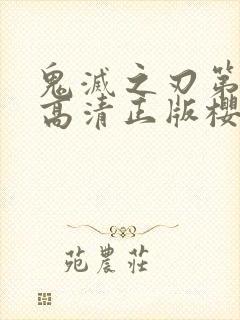 鬼滅之刃第
高清正版櫻
苑農莊